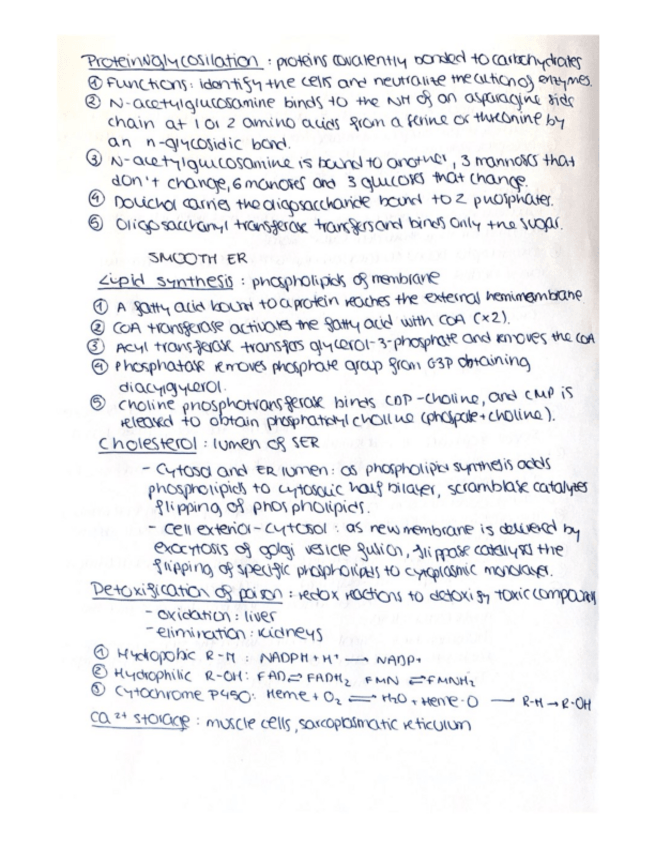 Protein N glycosilation : proteins covalently bonded to carbohydrates
① Functions: identify the cells and neutralize the action of enzymes.
② N-acetylglucosamine binds to the NH of an asparagine side
chain at 1 or 2 amino acids from a serine or threonine by
an n-glycosidic bond.
③ N-acetylglucosamine is bound to another, 3 mannoses that
don't change, 6 manoses and 3 glucoses that change.
④ Dolichol carries the oligosaccharide bound to 2 phosphates.
⑤ Oligosaccharyl transferase transfers and binds only the sugar.
SMOOTH ER
Lipid synthesis : phospholipids of membrane
① A fatty acid bound to a protein reaches the external hemimembrane
② CoA transferase activates the fatty acid with CoA (x2).
③ Acyl transferase transfers glycerol-3-phosphate and removes the CoA
④ Phosphatase removes phosphate group from G3P obtaining
diacyglycerol.
⑤ Choline phosphotransferase binds CDP-choline, and CMP is
released to obtain phosphatidyl choline (phospate+choline).
Cholesterol : lumen of SER
- Cytosol and ER lumen: as phospholipid synthesis adds
phospholipids to cytosolic half bilayer, scramblase catalytes
flipping of phospholipids.
- Cell exterior-cytosol : as new membrane is delivered by
exocytosis of golgi vesicle fusion, flippase catalysd the
flipping of specific phospholipids to cytoplasmic monolayer.
Detoxification of poison : redox reactions to detoxify toxic compounds
- oxidation : liver
- elimination : kidneys
① Hydropobic R-H : NADPH + H⁺ → NADP+
② Hydrophilic R-OH : FAD ⇌ FADH₂ FMN ⇌ FMNH₂
③ Cytochrome P450: Heme + O₂ ⇌ H₂O + Heme-O → R-H → R-OH
Ca²⁺ storage : muscle cells, sarcoplasmatic reticulum